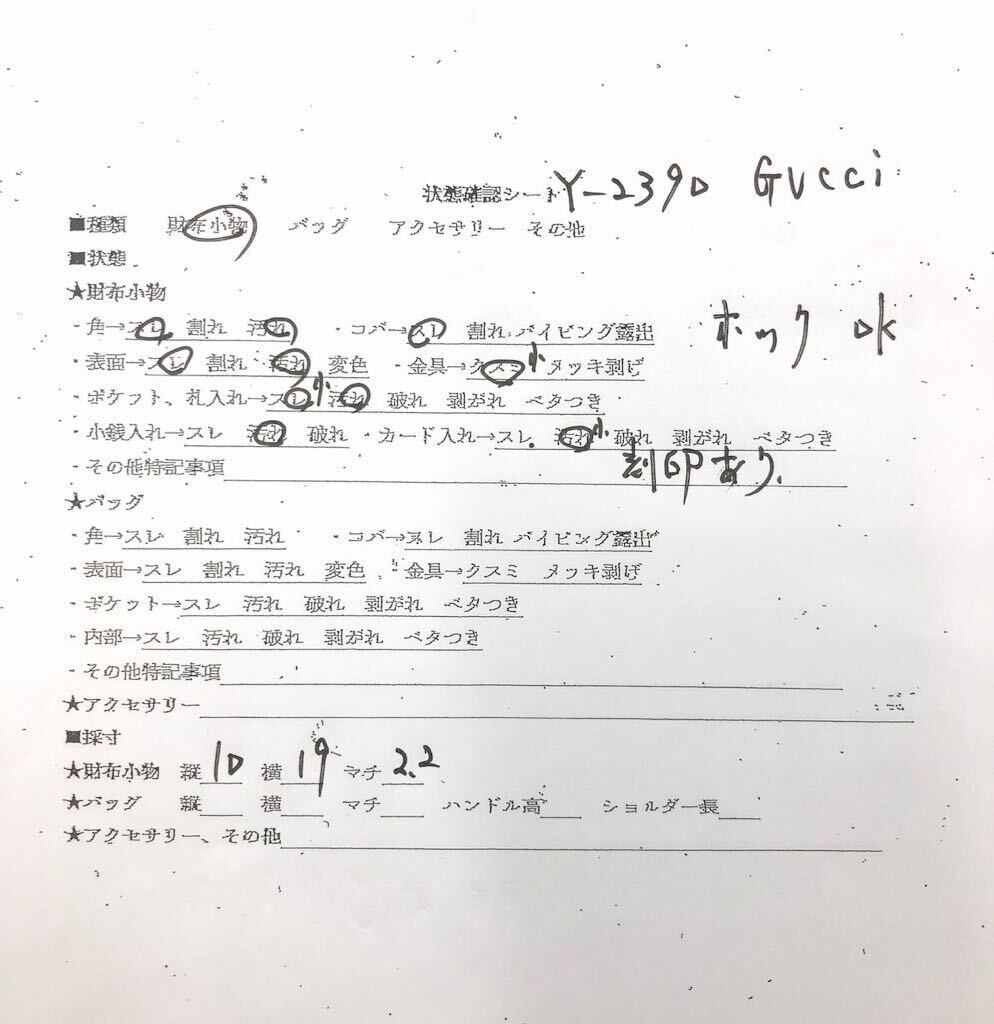 状態確認シート Y-2390 GUCCI
■種類 財布小物 バッグ アクセサリー その他
■状態
★財布小物
・角→スレ 割れ 汚れ ・コバ→スレ 割れ パイピング露出 ホック OK
・表面→スレ 割れ 汚れ 変色 ・金具→クスミ小 メッキ剥げ
・ポケット、札入れ→スレ小 汚れ 破れ 剥がれ ベタつき
・小銭入れ→スレ 汚れ 破れ ・カード入れ→スレ 汚れ小 破れ 剥がれ ベタつき
・その他特記事項 刻印あり
★バッグ
・角→スレ 割れ 汚れ ・コバ→スレ 割れ パイピング露出
・表面→スレ 割れ 汚れ 変色 ・金具→クスミ メッキ剥げ
・ポケット→スレ 汚れ 破れ 剥がれ ベタつき
・内部→スレ 汚れ 破れ 剥がれ ベタつき
・その他特記事項
★アクセサリー
■採寸
★財布小物 縦 10 横 19 マチ 2.2
★バッグ 縦 横 マチ ハンドル高 ショルダー長
★アクセサリー、その他